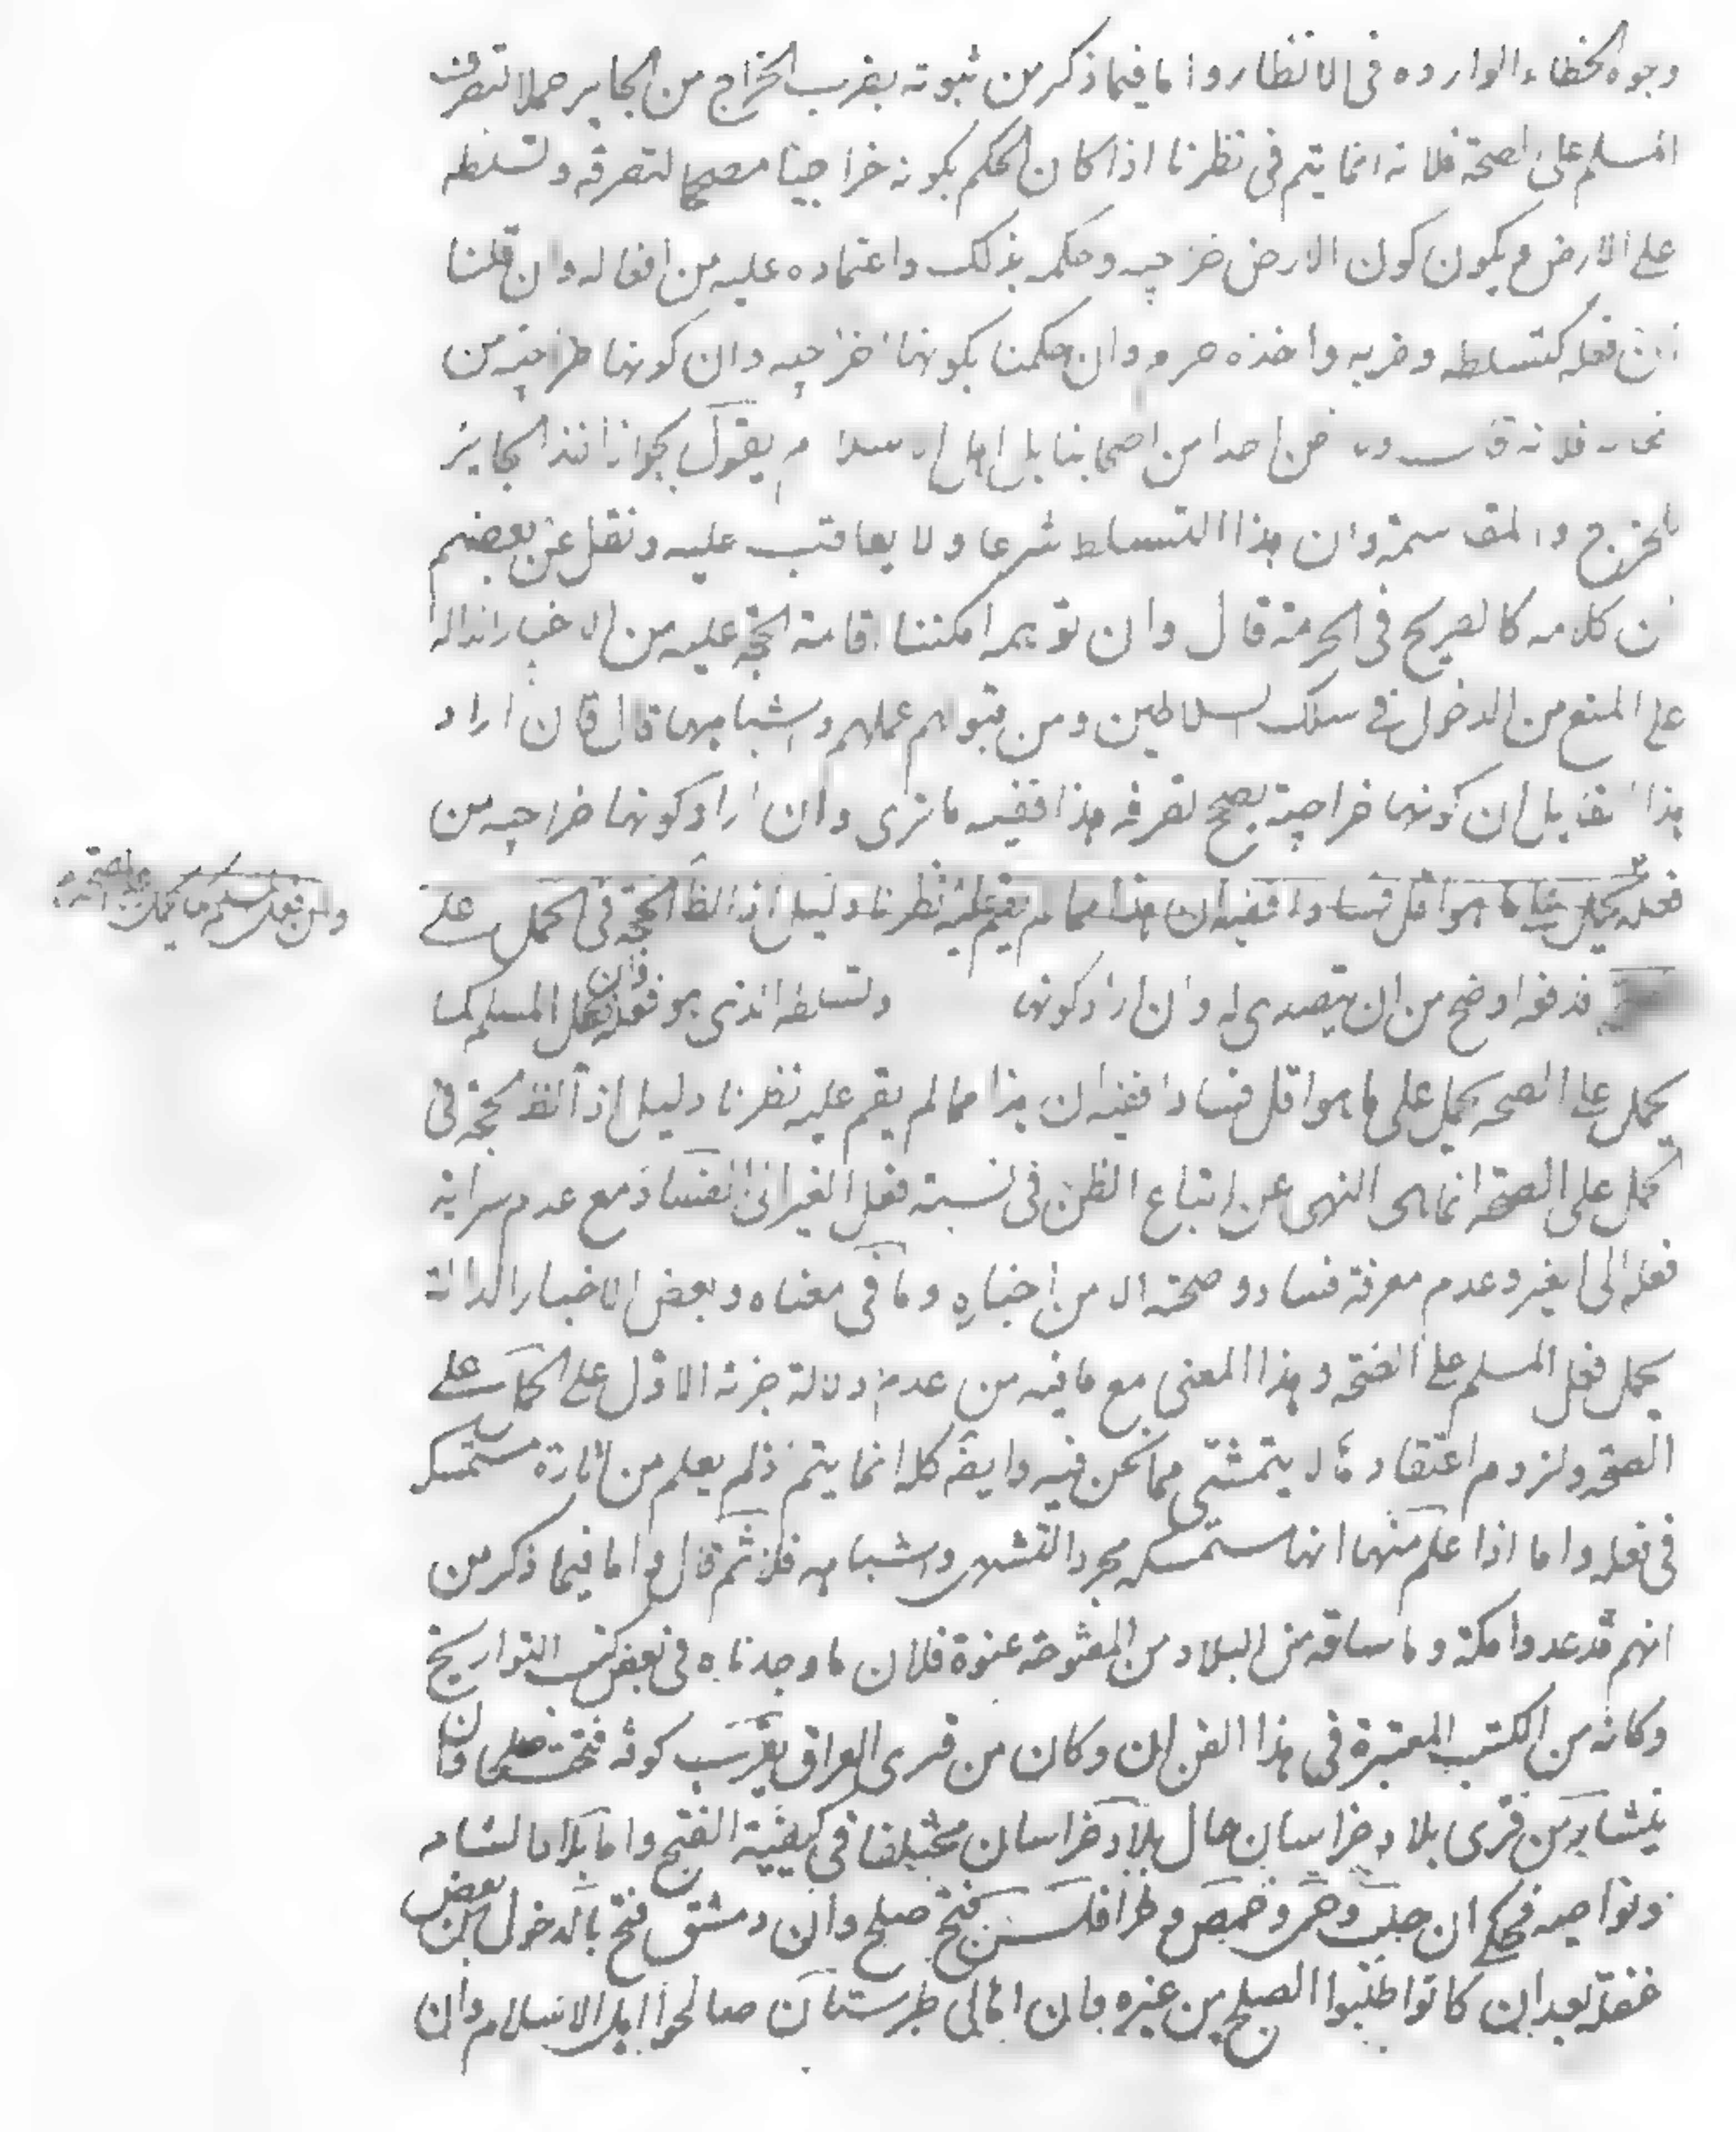 وجوه الخطاء الوارده فى الانظار واما فيما ذكر من ثبوته بضرب الخراج من الجاير حملا لتصرف
المسلم على الصحة فلانه انما يتم فى نظرنا اذا كان الحكم بكونه خراجيا مصححا لتصرفه وتسلطه
على الارض ويكون كون الارض خراجيه وحكمه بذلك واعتماده عليه من افعاله وان قلنا
ان فعله كتسلطه وضربه واخذه حرم وان حكمنا بكونها خراجيه وان كونها خراجية من
فلانه من احدا من اصحابنا بل اهل الاسلام يقول بجواز اخذ الجاير
الخراج والمقاسمة وان هذا التسلط شرعا ولا يعاقب عليه ونقل عن بعضهم
ان كلامه كالصريح فى الحرمة قال وان توهمه امكننا اقامة الحجة عليه من الاخبار الدالة
على المنع من الدخول فى سلك السلاطين ومن قبولهم عملهم واشباهها قال فان اراد
هذا القايل ان كونها خراجية يصحح تصرفه هذا ففيه ما ترى وان اراد كونها خراجيه من
فعله يحمل على ما هو اقل فسادا ففيه ان هذا مما لم يقم عليه نظرنا دليل اذ الظ الحجة فى الحمل على
فدفعه اوضح من ان يتصدى له وان اراد كونها وتسلطه الذى هو فعله فان فعل المسلم كما
يحمل على الصحه يحمل على ما هو اقل فسادا ففيه ان هذا مما لم يقم عليه نظرنا دليل اذ الظ الحجة فى
الحمل على الصحة انما هى النهى عن اتباع الظن فى نسبة فعل الغير الى الفساد مع عدم سراية
فعله الى الغير وعدم معرفة فساده وصحته الا من اخباره وما فى معناه وبعض الاخبار الدالة
يحمل فعل المسلم على الصحة وهذا المعنى مع ما فيه من عدم دلالة جزئه الاول على الحمل على
الصحة ولزوم اعتقاده لا يتمشى مما نحن فيه وايضا كله انما يتم اذ لم يعلم من اثاره مستمسكه
فى فعله واما اذا علم منها انها مستمسكه مجرد التشهى واشباهه فلا ثم قال واما فيما ذكر من
انهم قد عدوا مكة وما ساقه من البلاد من المفتوحة عنوة فلان ما وجدناه فى بعض كتب التواريخ
وكانه من الكتب المعتبرة فى هذا الفن ان وكان من قرى العراق بقرب كوفه فتحت صلحا وان
نيشابور من قرى بلاد خراسان حال بلاد خراسان مختلفا فى كيفية الفتح واما بلاد الشام
ونواحيه فحكى ان حلب وحمى وحمص وطرابلس فتح صلح وان دمشق فتح بالدخول من بعض
غفلة بعد ان كانوا طلبوا الصلح من غيره وان اهالى طبرستان صالحوا اهل الاسلام وان